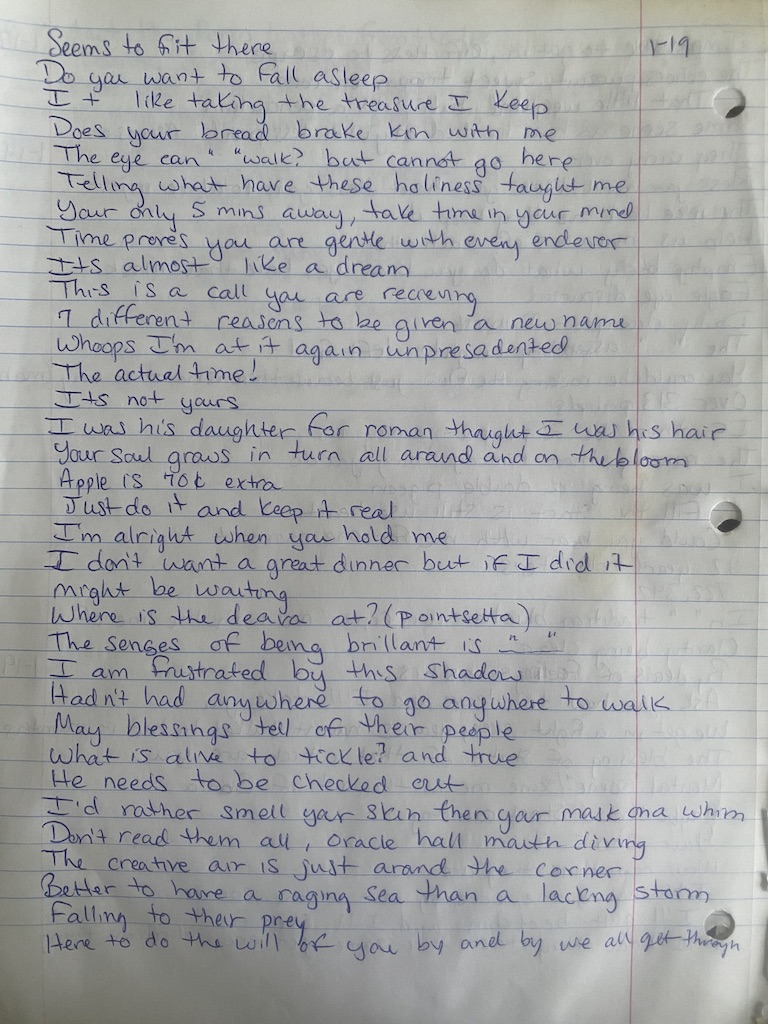 Seems to fit there 1-19
Do you want to fall asleep
I + like taking the treasure I keep
Does your bread brake kin with me
The eye can " "walk? but cannot go here
Telling what have these holiness taught me
Your only 5 mins away, take time in your mind
Time proves you are gentle with every endever
Its almost like a dream
This is a call you are recieving
7 different reasons to be given a new name
Whoops I'm at it again unpresadented
The actual time!
Its not yours
I was his daughter for roman thought I was his hair
Your soul grows in turn all around and on the bloom
Apple is 70k extra
Just do it and keep it real
I'm alright when you hold me
I don't want a great dinner but if I did it
might be waiting
Where is the at? (pointsetta)
The senses of being brillant is " "
I am frustrated by this shadow
Hadn't had anywhere to go anywhere to walk
May blessings tell of their people
What is alive to tickle? and true
He needs to be checked out
I'd rather smell your skin then your mask on a whim
Don't read them all, oracle hall mouth diving
The creative air is just arond the corner
Better to have a raging sea than a lackng storm
Falling to their prey
Here to do the will of you by and by we all get through